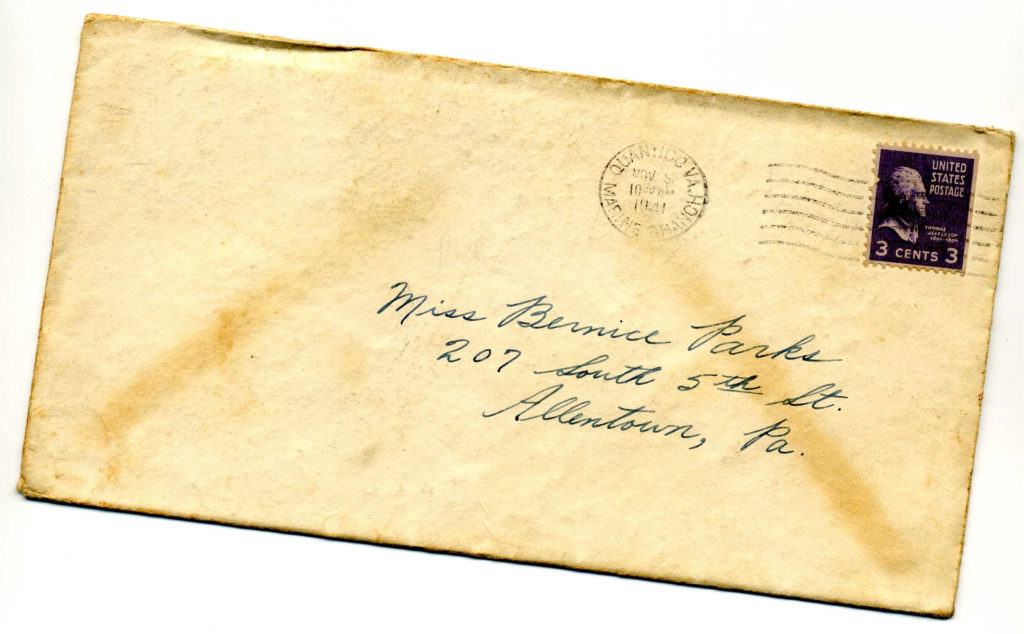 QUANTICO, VA.
MARINE BRANCH
NOV
1941
UNITED
STATES
POSTAGE
THOMAS
JEFFERSON
3 CENTS 3
Miss Bernice Parks
207 South 5th St.
Allentown, Pa.